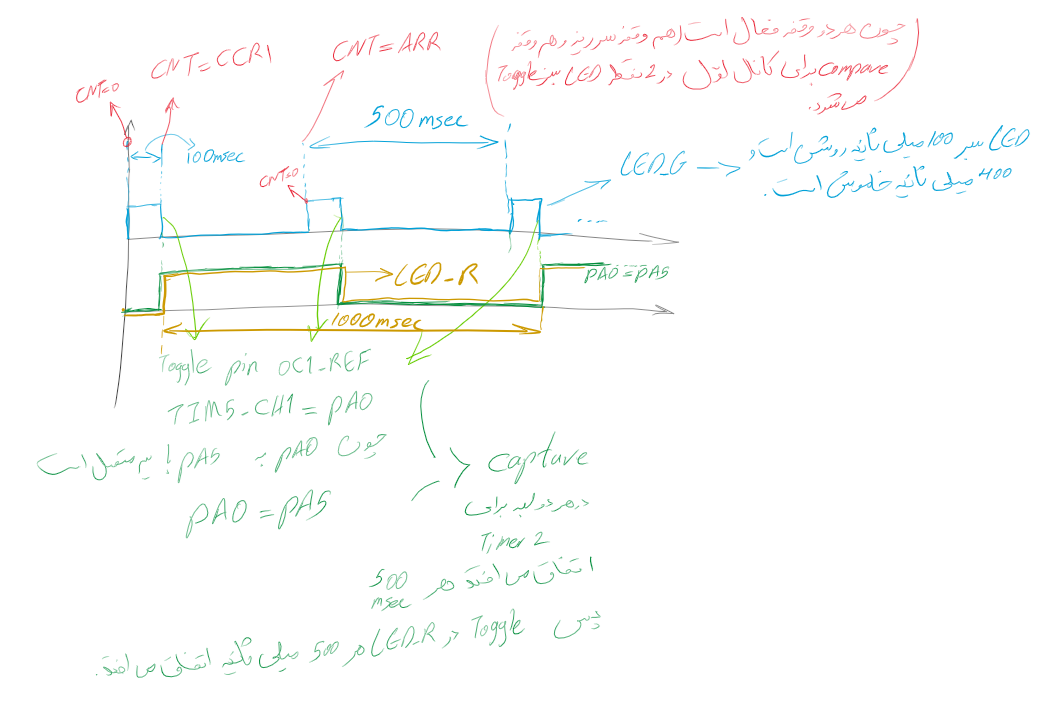 CNT=0
CNT=CCR1
CNT=ARR
(چون هر دو وقفه فعال است (هم وقفه سرریز و هم وقفه
compare برای کانال اول در 2 نقطه LED سبز Toggle
می‌شود.)
100msec
500msec
CNT=0
LED_G
LED سبز 100 میلی ثانیه روشن است و
400 میلی ثانیه خاموش است.
....
LED_R
PA0=PA5
1000msec
Toggle pin OC1_REF
TIM5_CH1=PA0
چون PA0 به PA5 متصل است
PA0=PA5
Capture
در هر دو لبه برای
Timer 2
اتفاق می افتد هر 500
msec
پس Toggle در LED_R هر 500 میلی ثانیه اتفاق می افتد.